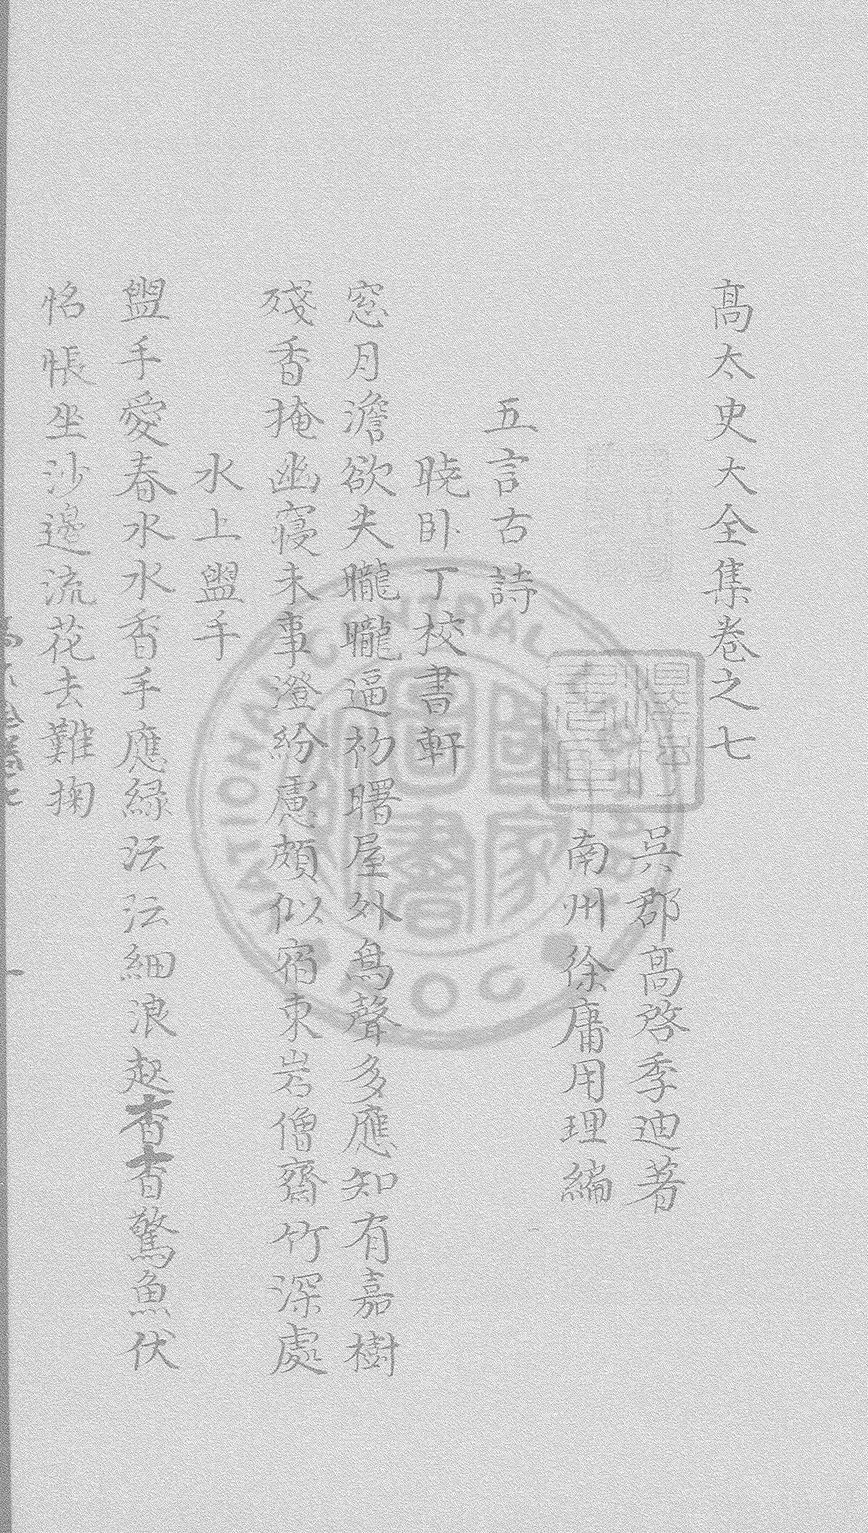 高太史大全集卷之七
吳郡高啓季迪著
南州徐庸用理編
五言古詩
曉卧丁校書軒
窓月澹欲失朧朧逼初曙屋外鳥聲多應知有嘉樹
殘香掩幽寢未事澄紛慮頗似宿東岩僧齋竹深處
水上盥手
盥手愛春水水香手應緑沄沄細浪起杳杳驚魚伏
惝悵坐沙邊流花去難掬
NATIONAL CENTRAL LIBRARY
國家圖書館
ROC